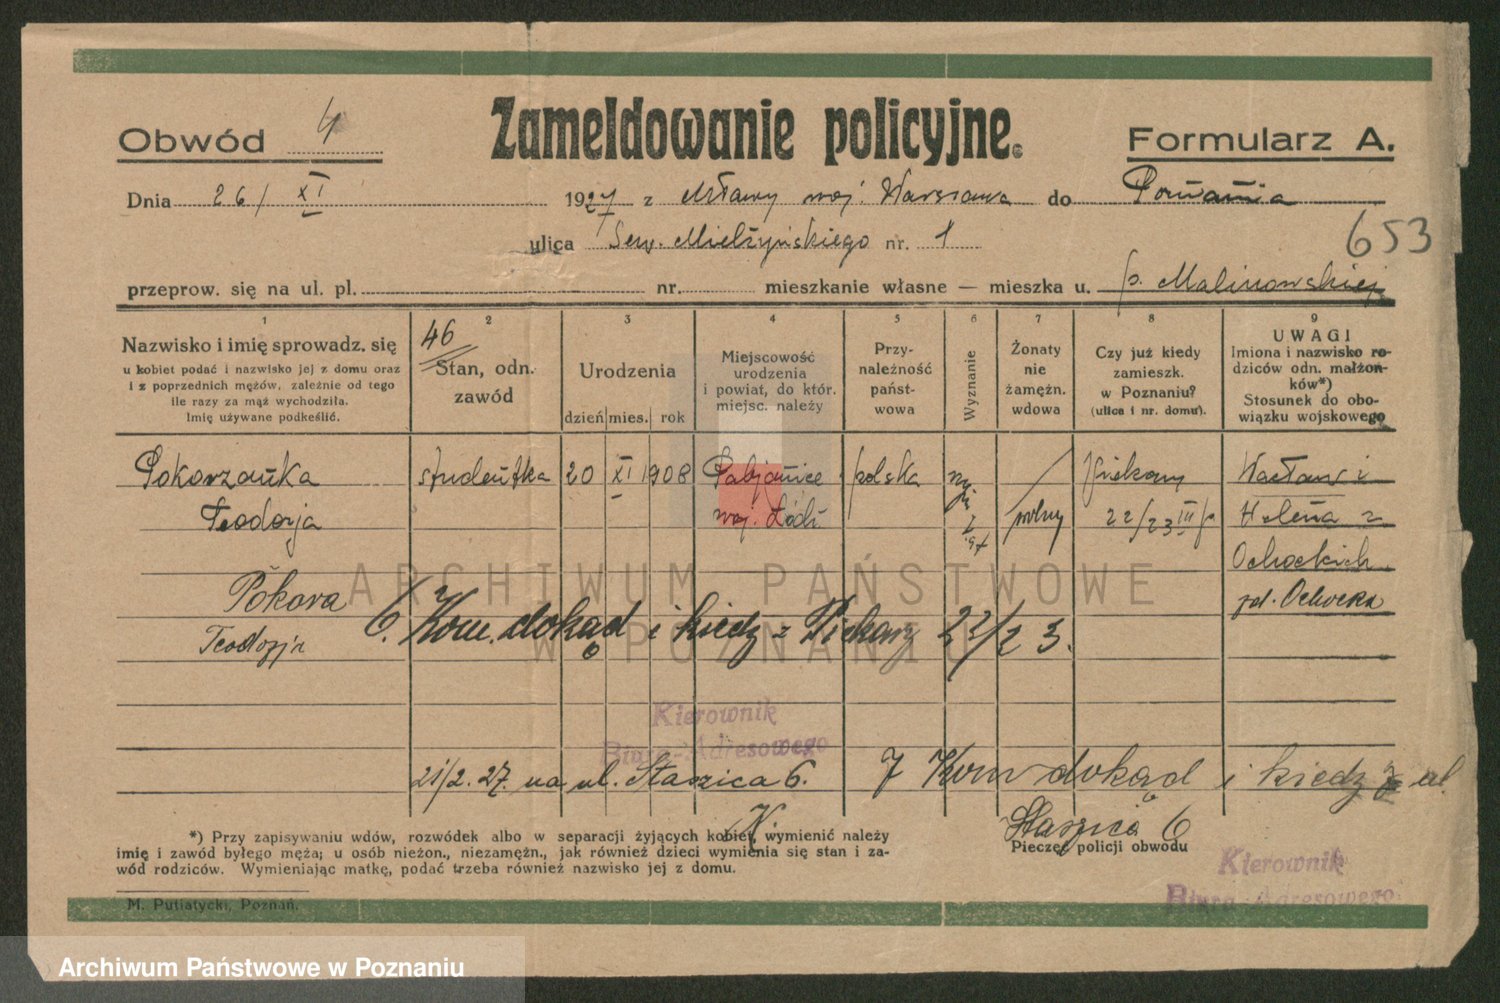 Zameldowanie policyjne.
Obwód 4
Formularz A.
Dnia 26/XI 1927 z Mławy woj. Warszawa do Poznania
ulica Sew. Mielżyńskiego nr. 1
653
przeprow. się na ul. pl. nr. mieszkanie własne — mieszka u. p. Malinowskiej
1
Nazwisko i imię sprowadz. się
u kobiet podać i nazwisko jej z domu oraz
i z poprzednich mężów, zależnie od tego
ile razy za mąż wychodziła.
Imię używane podkeślić.
46
2
Stan, odn.
zawód
3
Urodzenia
dzień mies. rok
4
Miejscowość
urodzenia
i powiat, do któr.
miejsc. należy
5
Przy-
należność
państ-
wowa
6
Wyznanie
7
Żonaty
nie
żamężn.
wdowa
8
Czy już kiedy
zamieszk.
w Poznaniu?
(ulica i nr. domu).
9
UWAGI
Imiona i nazwisko ro-
dziców odn. małżon-
ków*)
Stosunek do obo-
wiązku wojskowego
Pokorzanka studentka 20 XI 1908 Pabjanice polska Wacław i
Teodorja woj. Łódź 22/23 III Helena z
Ochockich
Pokora zd. Ochocka
Teodozja
6. Kom. dokąd i kiedy z Piekary 22/23.
ARCHIWUM PAŃSTWOWE
W POZNANIU
Kierownik
Biura-Adresowego
21/2.27. na ul. Staszica 6.
7 Kom dokąd i kiedy z ul.
Staszica 6
*) Przy zapisywaniu wdów, rozwódek albo w separacji żyjących kobiet, wymienić należy
imię i zawód byłego męża; u osób nieżon., niezamężn., jak również dzieci wymienia się stan i za-
wód rodziców. Wymieniając matkę, podać trzeba również nazwisko jej z domu.
Pieczęć policji obwodu
Kierownik
Biura-Adresowego
M. Putiatycki, Poznań.
Archiwum Państwowe w Poznaniu